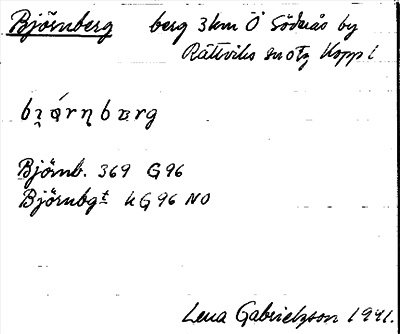 Björnberg berg 3 km Ö Söderås by
Rättviks sn otg Kopp l
Björnb. 369 G96
Björnbgt k G 96 NO
Lena Gabrielzson 1941.